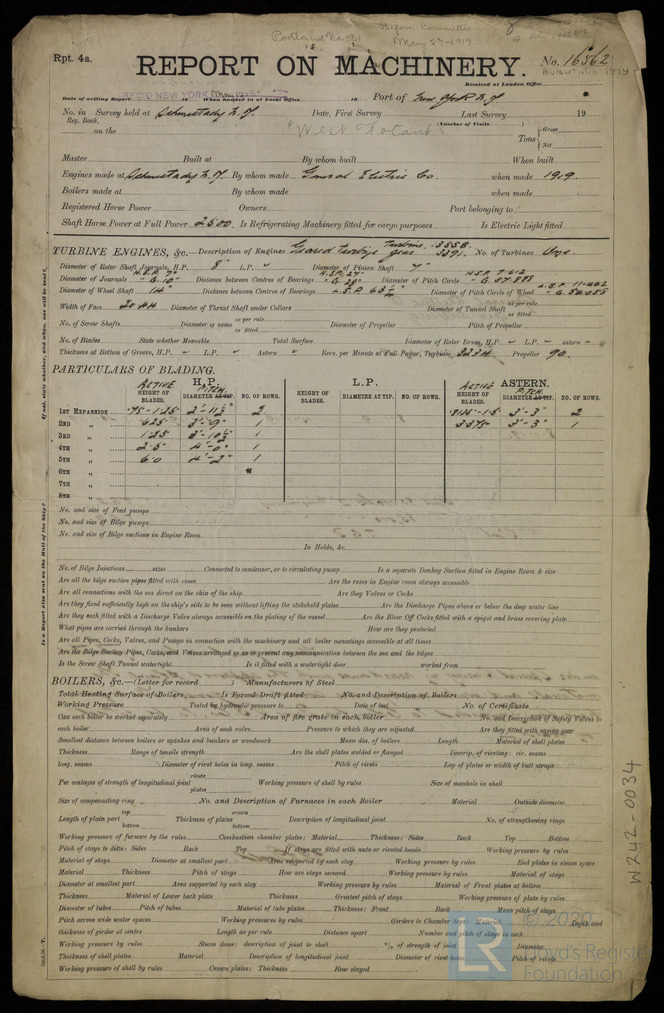 Portland No. 661
May 27-1919.
Rpt. 4a.
REPORT ON MACHINERY.
No. 16562
Received at London Office
REC'D NEW YORK May 12 1919
Date of writing Report 19 When handed in at Local Office 19 Port of New York N.Y.
No. in Survey held at Schenectady N.Y. Date, First Survey Last Survey 19
Reg. Book. (Number of Visits)
on the "West Totant" Tons Gross Net
Master Built at By whom built When built
Engines made at Schenectady N.Y. By whom made General Electric Co. when made 1919.
Boilers made at By whom made when made
Registered Horse Power Owners Port belonging to
Shaft Horse Power at Full Power 2500 Is Refrigerating Machinery fitted for cargo purposes Is Electric Light fitted
TURBINE ENGINES, &c.—Description of Engines Geared turbine Turbine 13558 3391. No. of Turbines One.
Diameter of Rotor Shaft Journals, H.P. 8" L.P. Diameter of Pinion Shaft 7"
Diameter of Journals Distance between Centres of Bearings Diameter of Pitch Circle
Diameter of Wheel Shaft 14" Distance between Centres of Bearings L.S.P. 63½ Diameter of Pitch Circle of Wheel
Width of Face Diameter of Thrust Shaft under Collars Diameter of Tunnel Shaft as per rule as fitted
No. of Screw Shafts Diameter of same as per rule as fitted Diameter of Propeller Pitch of Propeller
No. of Blades State whether Moveable Total Surface Diameter of Rotor Drum, H.P. L.P. astern
Thickness at Bottom of Groove, H.P. L.P. Astern Revs. per Minute at Full Power, Turbine Propeller 90.
PARTICULARS OF BLADING.
H.P. L.P. ASTERN.
ACTIVE HEIGHT OF BLADES. PITCH DIAMETER AT TIP. NO. OF ROWS. HEIGHT OF BLADES. DIAMETER AT TIP. NO. OF ROWS. ACTIVE HEIGHT OF BLADES. PITCH DIAMETER AT TIP. NO. OF ROWS.
1ST EXPANSION .75-1.25 2'-11½" 2 3'-3" 2
2ND „ .625 3'-9" 1 3'-3" 1
3RD „ 1.25 3'-10½" 1
4TH „ 2.5 4'-0" 1
5TH „ 6.0 4'-2" 1
6TH „
7TH „
8TH „
No. and size of Feed pumps
No. and size of Bilge pumps
No. and size of Bilge suctions in Engine Room
In Holds, &c.
No. of Bilge Injections sizes Connected to condenser, or to circulating pump Is a separate Donkey Suction fitted in Engine Room & size
Are all the bilge suction pipes fitted with roses Are the roses in Engine room always accessible
Are all connections with the sea direct on the skin of the ship Are they Valves or Cocks
Are they fixed sufficiently high on the ship's side to be seen without lifting the stokehold plates Are the Discharge Pipes above or below the deep water line
Are they each fitted with a Discharge Valve always accessible on the plating of the vessel Are the Blow Off Cocks fitted with a spigot and brass covering plate
What pipes are carried through the bunkers How are they protected
Are all Pipes, Cocks, Valves, and Pumps in connection with the machinery and all boiler mountings accessible at all times
Are the Bilge Suction Pipes, Cocks, and Valves arranged so as to prevent any communication between the sea and the bilges
Is the Screw Shaft Tunnel watertight Is it fitted with a watertight door worked from
BOILERS, &c.—(Letter for record ) Manufacturers of Steel
Total Heating Surface of Boilers Is Forced Draft fitted No. and Description of Boilers
Working Pressure Tested by hydraulic pressure to Date of test No. of Certificate
Can each boiler be worked separately Area of fire grate in each boiler No. and Description of Safety Valves to
each boiler Area of each valve Pressure to which they are adjusted Are they fitted with easing gear
Smallest distance between boilers or uptakes and bunkers or woodwork Mean dia. of boilers Length Material of shell plates
Thickness Range of tensile strength Are the shell plates welded or flanged Descrip. of riveting: cir. seams
long. seams Diameter of rivet holes in long. seams Pitch of rivets Lap of plates or width of butt straps
Per centages of strength of longitudinal joint rivets plates Working pressure of shell by rules Size of manhole in shell
Size of compensating ring No. and Description of Furnaces in each Boiler Material Outside diameter
Length of plain part top bottom Thickness of plates crown bottom Description of longitudinal joint No. of strengthening rings
Working pressure of furnace by the rules Combustion chamber plates: Material Thickness: Sides Back Top Bottom
Pitch of stays to ditto: Sides Back Top If stays are fitted with nuts or riveted heads Working pressure by rules
Material of stays Diameter at smallest part Area supported by each stay Working pressure by rules End plates in steam space
Material Thickness Pitch of stays How are stays secured Working pressure by rules Material of stays
Diameter at smallest part Area supported by each stay Working pressure by rules Material of Front plates at bottom
Thickness Material of Lower back plate Thickness Greatest pitch of stays Working pressure of plate by rules
Diameter of tubes Pitch of tubes Material of tube plates Thickness: Front Back Mean pitch of stays
Pitch across wide water spaces Working pressures by rules Girders to Chamber tops: Material Depth and
thickness of girder at centre Length as per rule Distance apart Number and pitch of stays in each
Working pressure by rules Steam dome: description of joint to shell % of strength of joint Diameter
Thickness of shell plates Material Description of longitudinal joint Diameter of rivet holes Pitch of rivets
Working pressure of shell by rules Crown plates: Thickness How stayed
If not, state whether, and when, one will be sent?
Is a Report also sent on the Hull of the Ship?
W242-0034
© 2020
LR
Lloyd's Register
Foundation